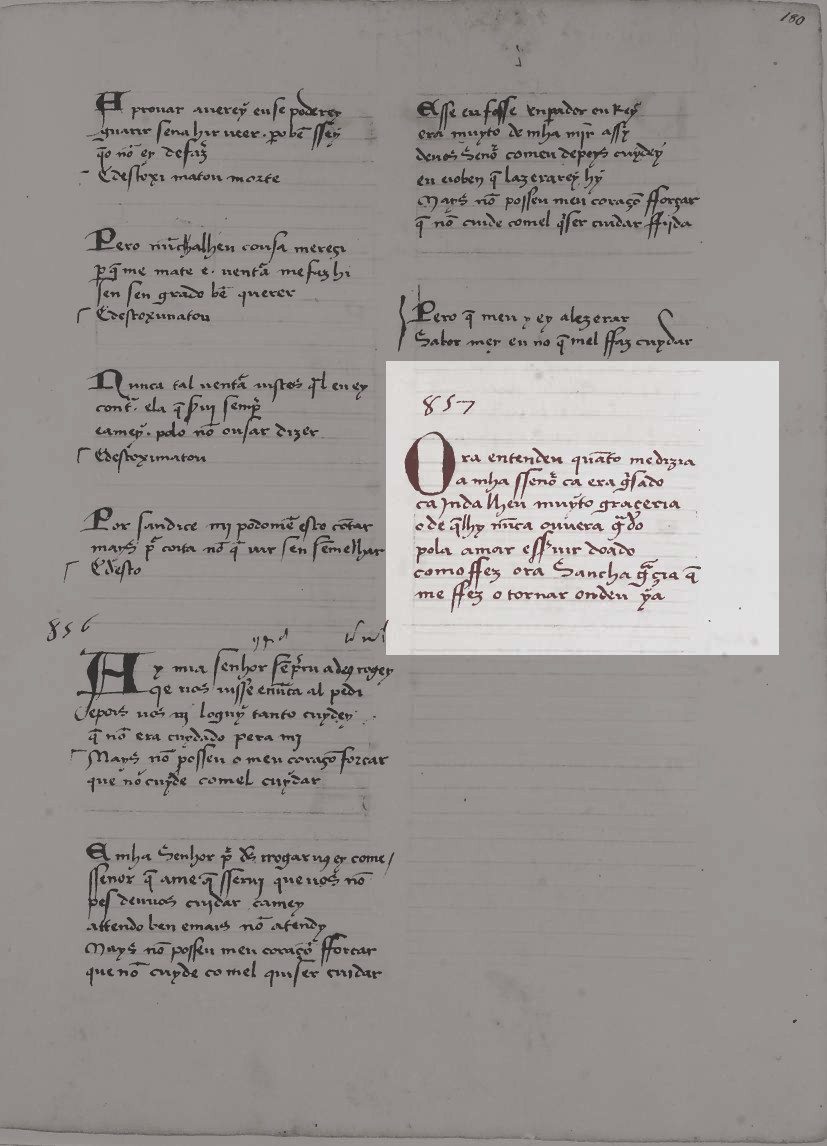 180
A prouar auerey̆ euse poderey
guarir sena hir ueer. ꝑo bē ssey̆
q̄o nō ey defaz̃
Edestoxi matou morte
Pero nūchalheu cousa merezi
ꝑq̄ me mate e. uent̃a mefaz hi
sen sen grado bē querer
Edestoxumatou
Nunca tal uent̃a uistes q̄l eu ey
cont̃. ela q̄ s̃ui semp̃
eamey̆. polo nō ousar dizer
Edestoximatou
Por sandice mj podomē esto cōtar
mays p̃ coita nō q̄ uir sen semelhar
Edesto
856
Ay mia senhor
que uos uisse enūca al pedi
depois uos ui loguy̆ tanto cuydey
q̄ nō era cuydado pera mj
Mays nō posseu o meu coraçō forcar
que nō cuyde comel cuydar
A mha Senhor p̃ come
ssenor q̄ ame. q̄ sserui que uos nō
pes deuuos cuidar camey
attendo ben emais nō atendy
Mays nō posseu meu coraçō fforcar
que nō cuyde comel quiser cuidar
Esse eu fosse enp̃ador ou Rey̆
era muyto de mha mir̃ assy̆
deuos Senõ comeu depoys cuydey
eu euoben q̄ lazerarey hy
Mays nō posseu meu coraçō fforçar
q̄ nō cuide comel q̃ser cuidar ffijda
Pero q̄ meu y ey alezerar
Sabor mey eu nō q̄ mel ffaz cuydar
857
Ora entendeu quāto medizia
a mha ssenõ ca era g̃sado
ca Jnda lheu muyto graceria
o de q̄lhy nūca ouuera g̃do
pola amar ess̃uir doado
como ffez ora Sancha g̃çia q̄
me ffez o tornar ondeu y̆a